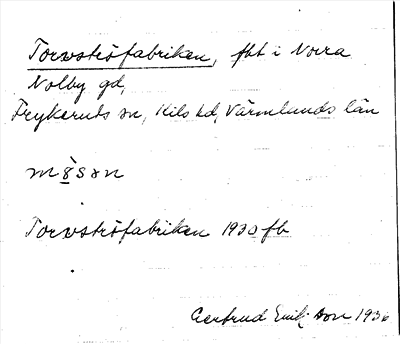 Torvströfabriken, fbt i Norra
Nolby gd,
Frykeruds sn, Kils hd, Värmlands län
mösan
Torvströfabriken 1930 fb
Gertrud Eriksson 1936